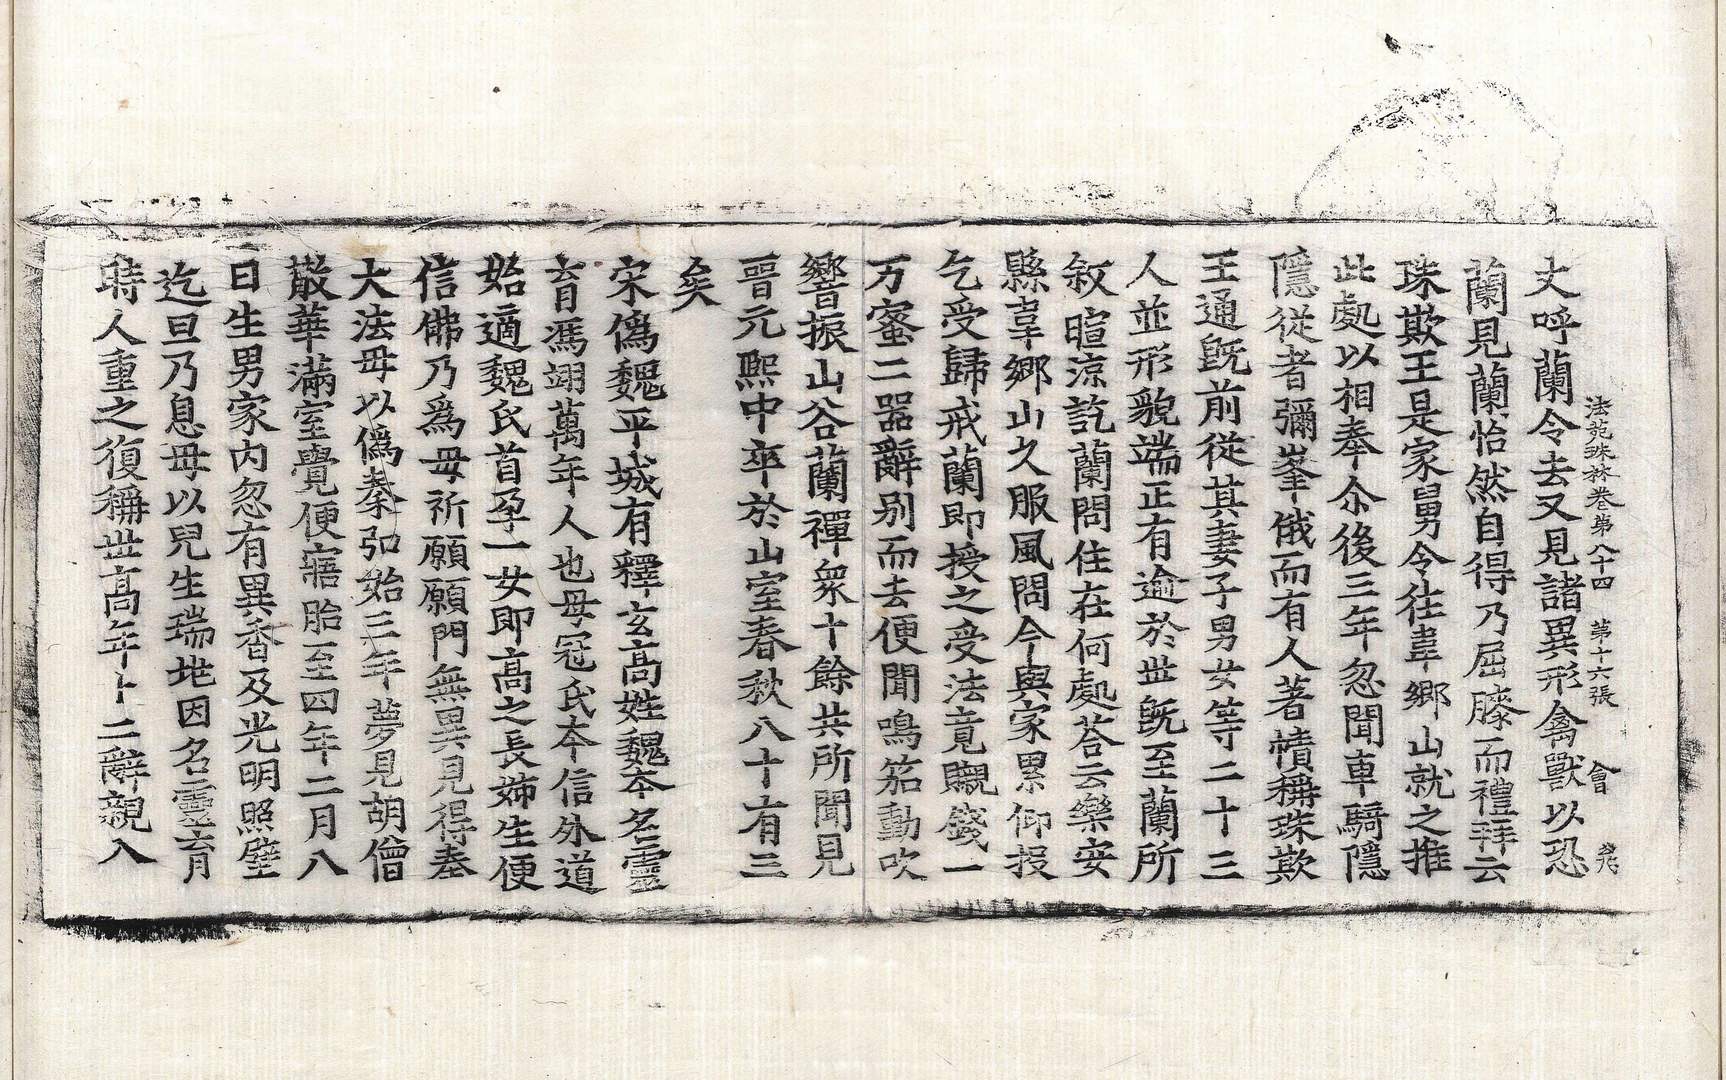 法苑珠林卷第八十四 第十六張 會
丈呼蘭令去又見諸異形禽獸以恐
蘭見蘭怡然自得乃屈膝而禮拜云
珠欺王是家舅今往韋鄉山就之推
此處以相奉尒後三年忽聞車騎隱
隱從者彌峯俄而有人著幘稱珠欺
王通旣前從其妻子男女等二十三
人並形貌端正有逾於丗旣至蘭所
敘暄涼訖蘭問住在何處荅云樂安
縣韋鄉山久服風問今與家累仰投
乞受歸戒蘭即授之受法竟䞋錢一
万蜜二器辭別而去便聞鳴笳動吹
響振山谷蘭禪衆十餘共所聞見
晉元熙中卒於山室春秋八十有三
矣
宋僞魏平城有釋玄高姓魏本名靈
育馮翊萬年人也母冦氏夲信外道
始適魏氏首孕一女即高之長姊生便
信佛乃爲母祈願願門無異見得奉
大法母以僞秦弘始三年夢見胡僧
散華滿室覺便寤胎至四年二月八
日生男家內忽有異香及光明照壁
迄旦乃息母以兒生瑞地因名靈育
時人重之復稱丗高年十二辭親入